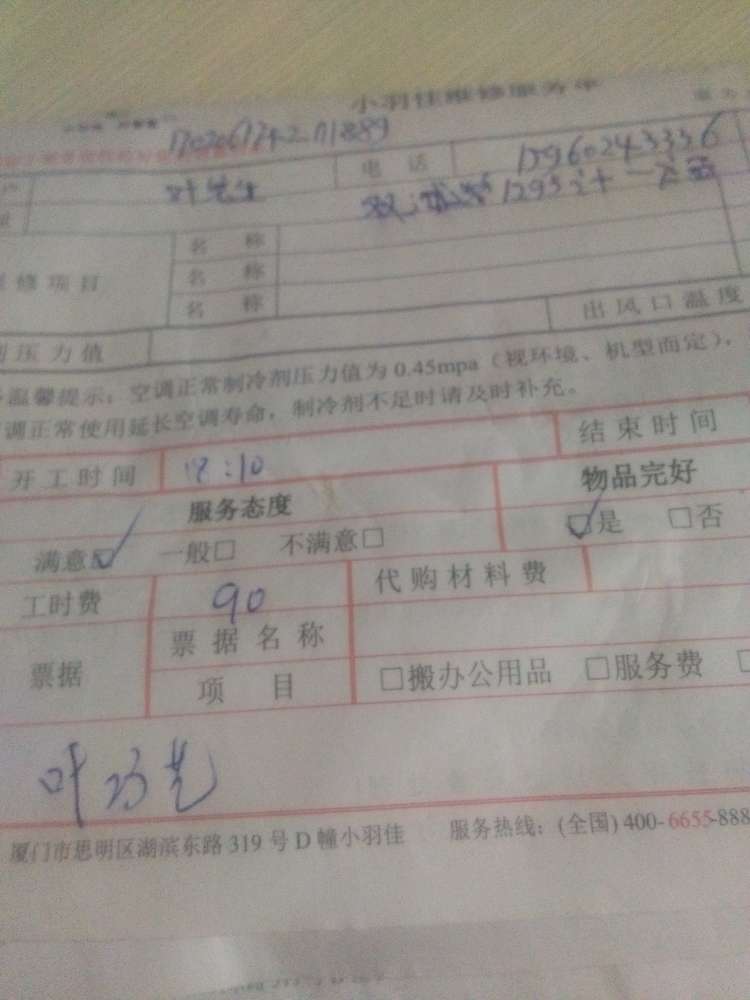 小羽佳维修服务单
叶先生 电话 15960243336
名称
维修项目 名称
名称
出风口温度
压力值
温馨提示：空调正常制冷剂压力值为0.45mpa（视环境、机型而定），
调正常使用延长空调寿命，制冷剂不足时请及时补充。
开工时间 18:10 结束时间
服务态度 物品完好
满意☑ 一般□ 不满意□ ☑是 □否
工时费 90 代购材料费
票据名称
票据
项目 □搬办公用品 □服务费
厦门市思明区湖滨东路319号D幢小羽佳 服务热线：(全国)400-6655-888